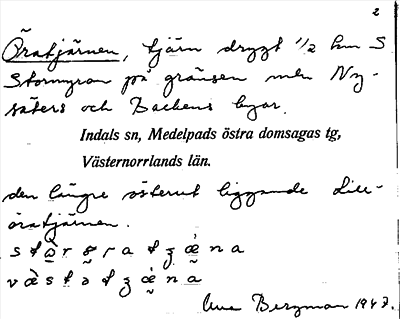 2
Öratjärnen, tjärn drygt 1/2 km S
Stormyran på gränsen mln Ny-
säters och Backens byar.
Indals sn, Medelpads östra domsagas tg,
Västernorrlands län.
den längre österut liggande Lill-
öratjärnen.
Bergman 1947.